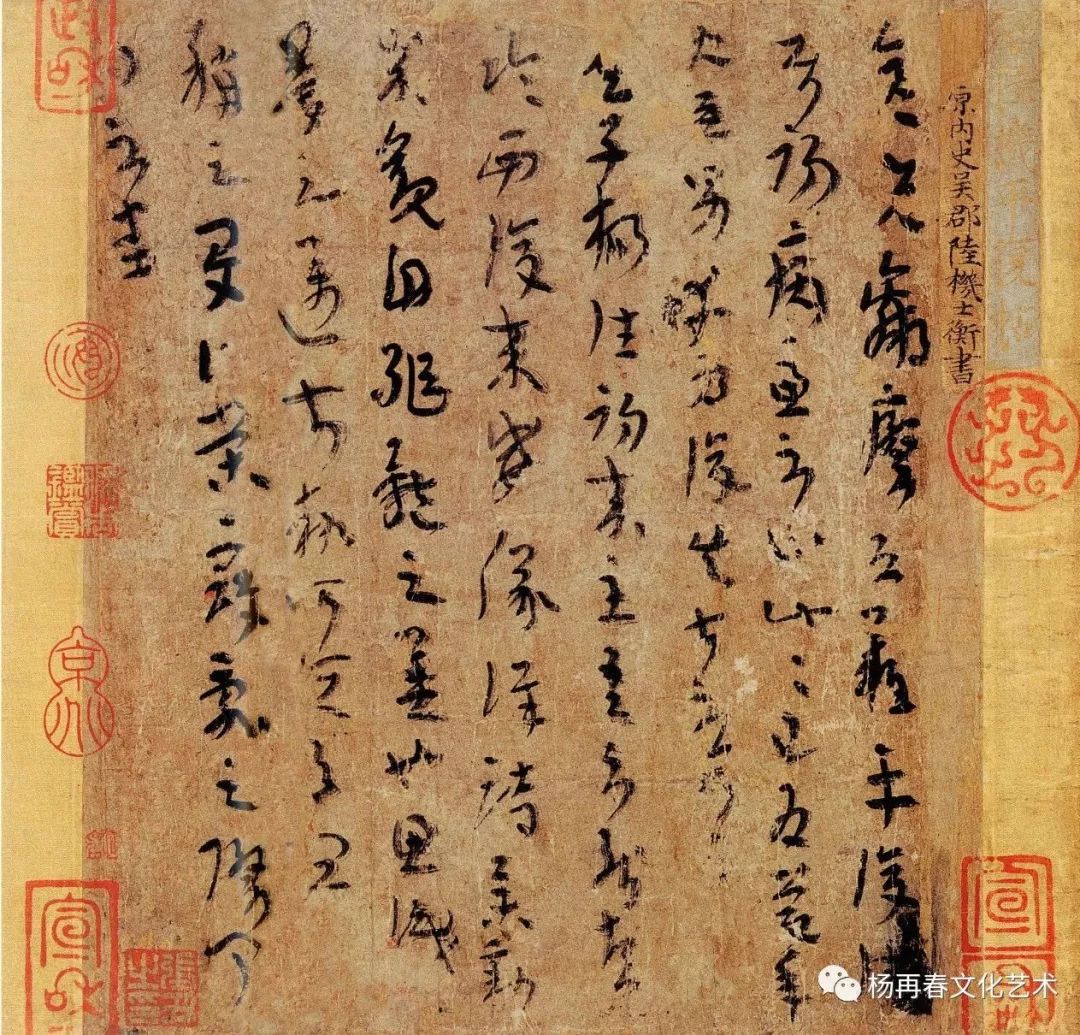 原內史吳郡陸機士衡書
彥先羸瘵恐難平復往
屬初病慮不止此〻已為慶承
使唯男幸為復失前憂耳
吳子楊往初來主吾不能盡
臨西復來威儀詳跱舉動
成觀自軀體之美也思識
量之邁前執所恒有宜
稱之夏伯榮寇亂之際聞
問不悉
宣和
杨再春文化艺术